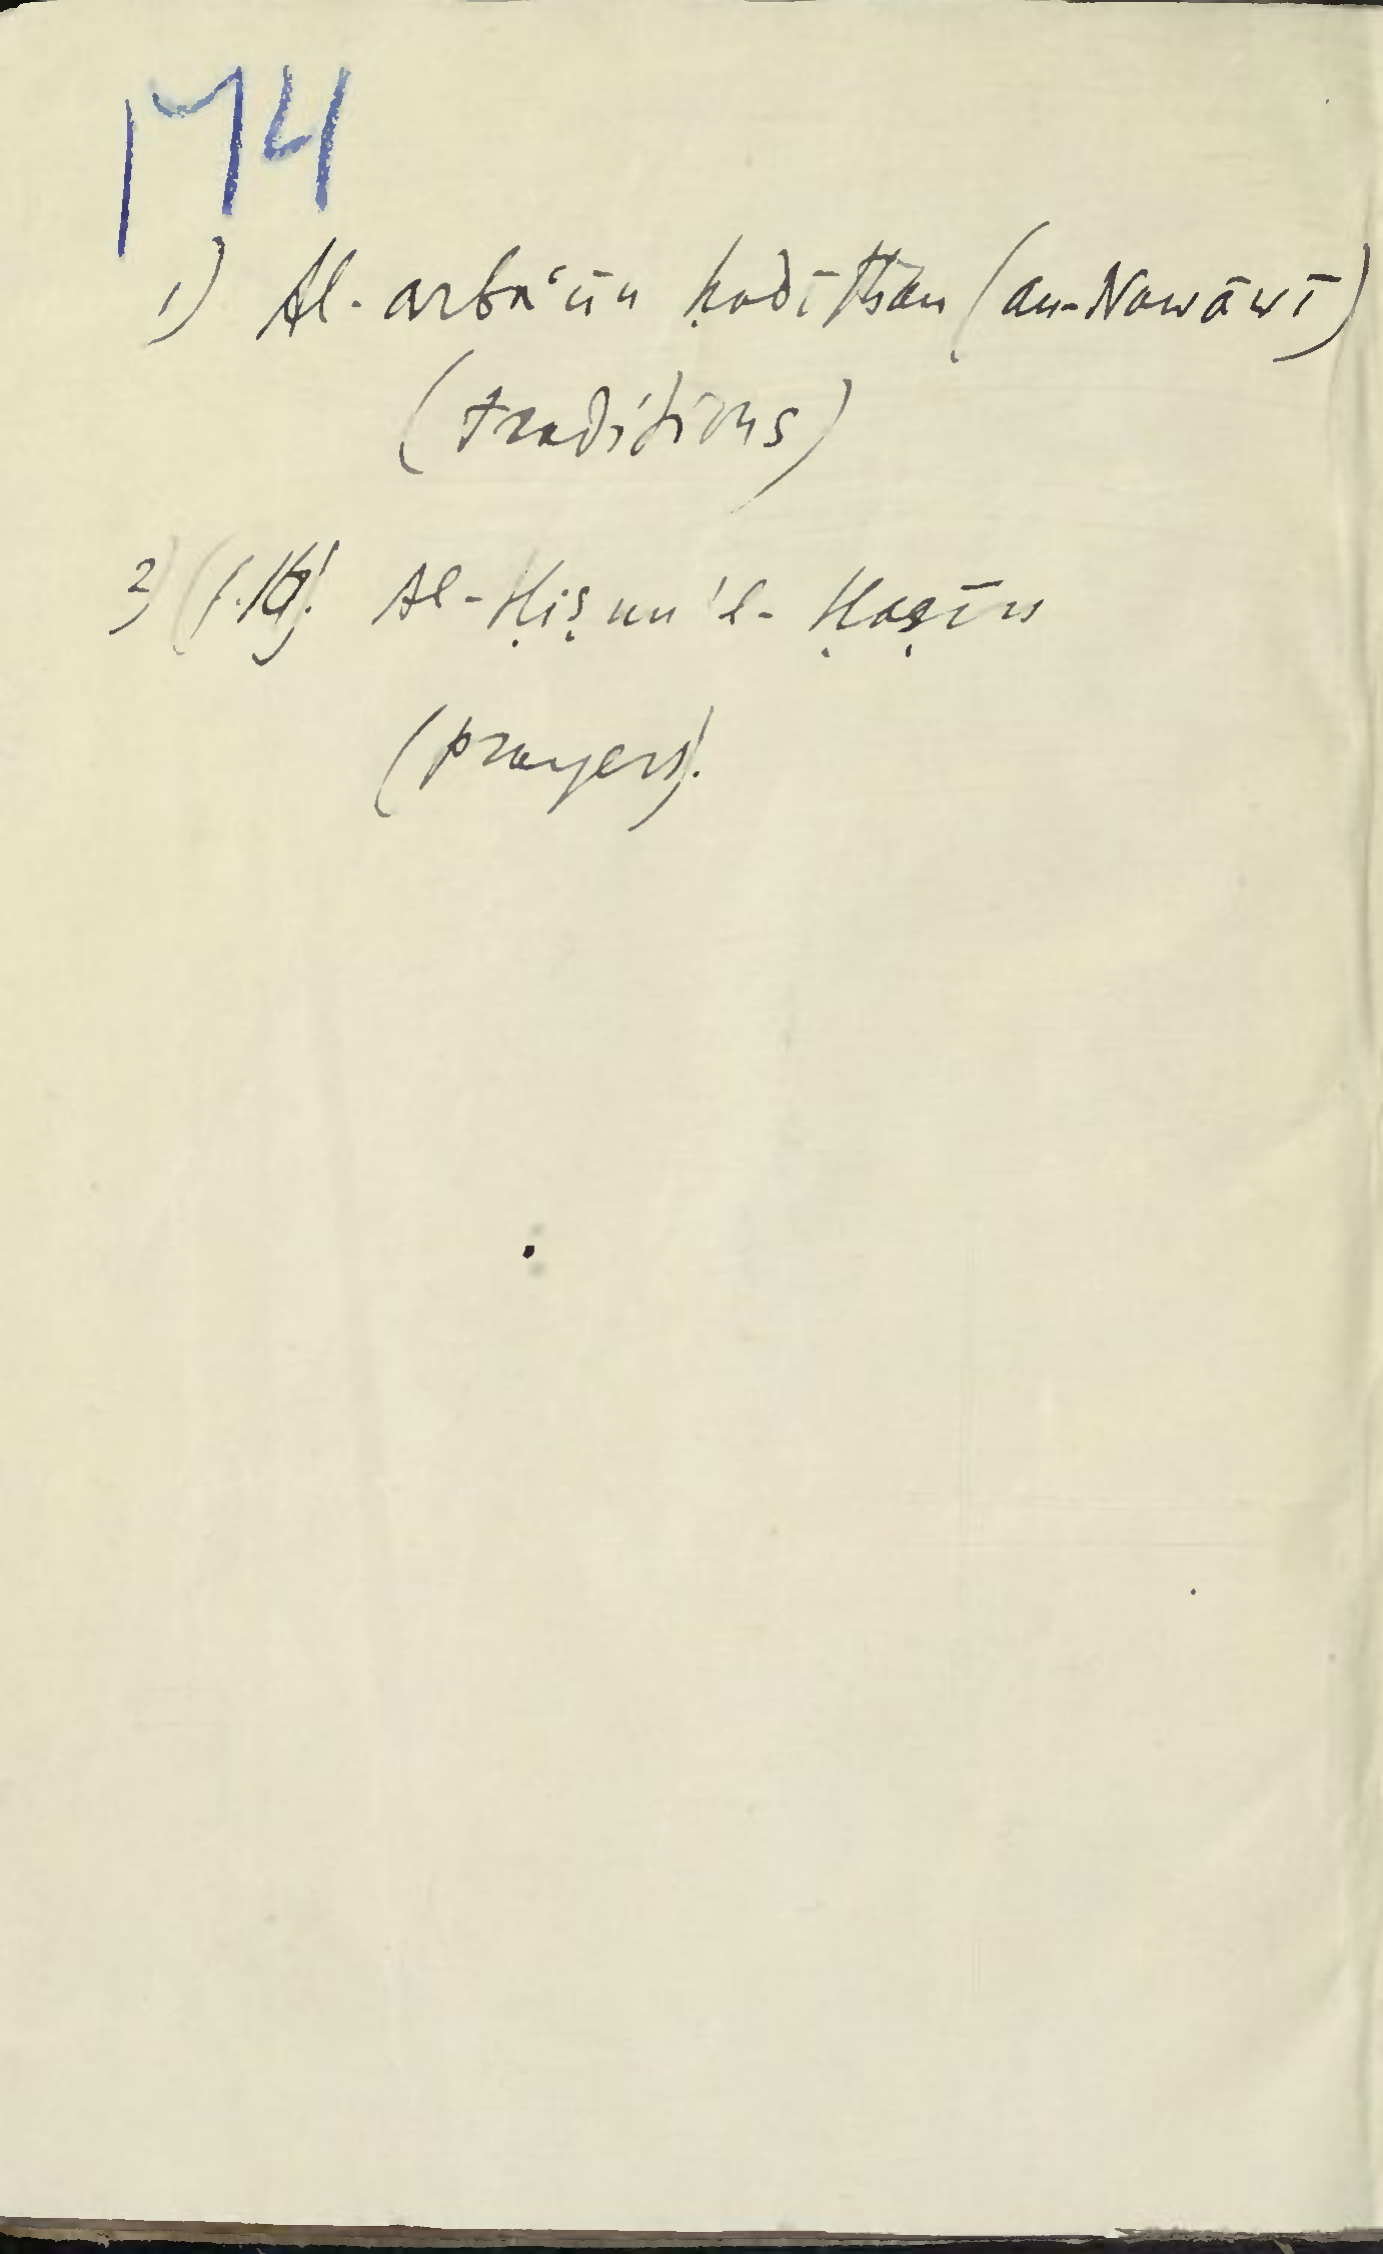 M4
1) Al-arba‘ūn ḥadīthan (an-Nawāwī)
(traditions)
2) Al-Ḥiṣnu'l-Ḥaṣīn
(prayers).